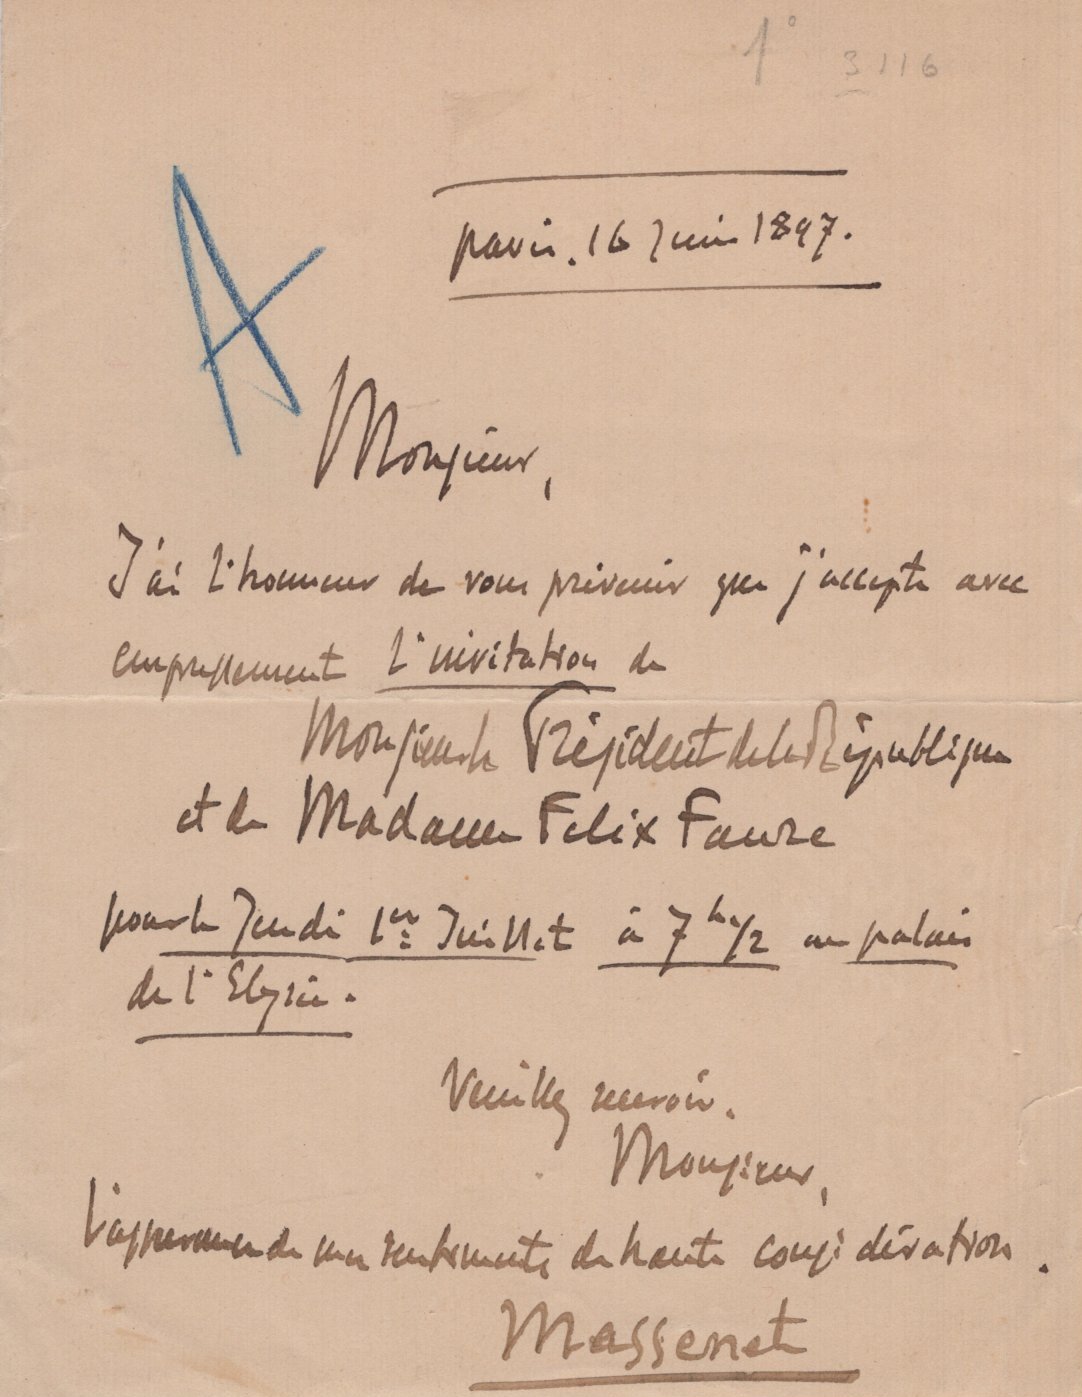 1° 3116
A
paris. 16 Juin 1897.
Monsieur,
J'ai l'honneur de vous prévenir que j'accepte avec
empressement l'invitation de
Monsieur le Président de la République
et de Madame Felix Faure
pour le Jeudi 1er Juillet à 7 h. 1/2 au palais
de l'Elysée.
Veuillez recevoir,
Monsieur,
l'assurance de mes sentiments de haute considération.
Massenet